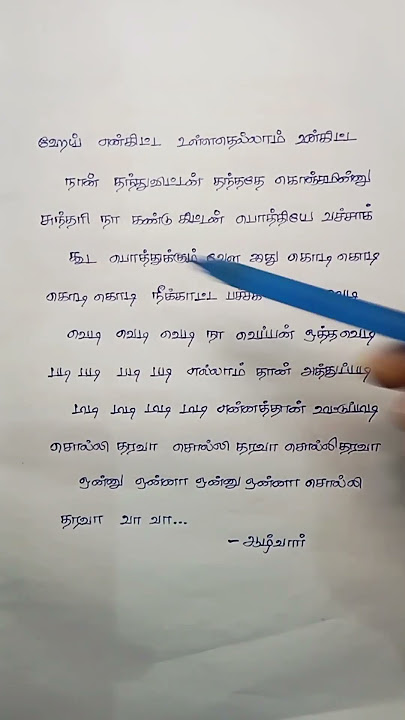 ஹேய் என்கிட்ட உள்ளதெல்லாம் உன்கிட்ட
நான் தந்துவுடன் தந்ததே கொஞ்சமின்னு
சுந்தரி நா கண்டு கிட்டன் பொத்தியே வச்சாக்
கூட பொத்துக்கும் வேள அது கொடி கொடி
கொடி கொடி நீக்காட்ட பச்சக் வெடி
வெடி வெடி வெடி நா வெப்பன் ஒத்த வெடி
படி படி படி படி எல்லாம் தான் அத்துப்படி
மடி மடி மடி மடி என்னத்தான்
சொல்லி தரவா சொல்லி தரவா சொல்லி தரவா
ஒன்னு ஒன்னா ஒன்னு ஒன்னா சொல்லி
தரவா வா வா...
- ஆழ்வார்